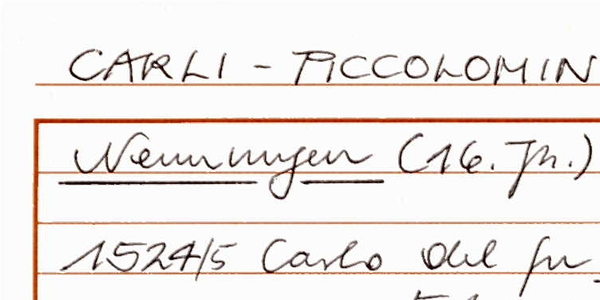 CARLI - PICCOLOMIN
Nennungen (16. Jh.)
1524/5 Carlo del fu